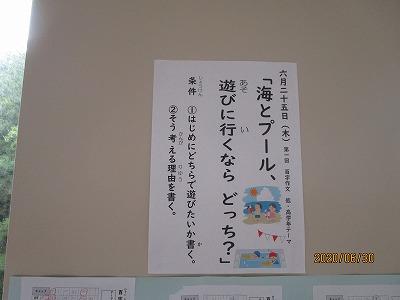 六月二十五日（木） 第一回 百字作文 低・高学年テーマ
「海とプール、
遊びに行くなら どっち？」
あそ い
条件 ①はじめにどちらで遊びたいか書く。
じょうけん か
②そう考える理由を書く。
かんが りゆう
2020/06/30